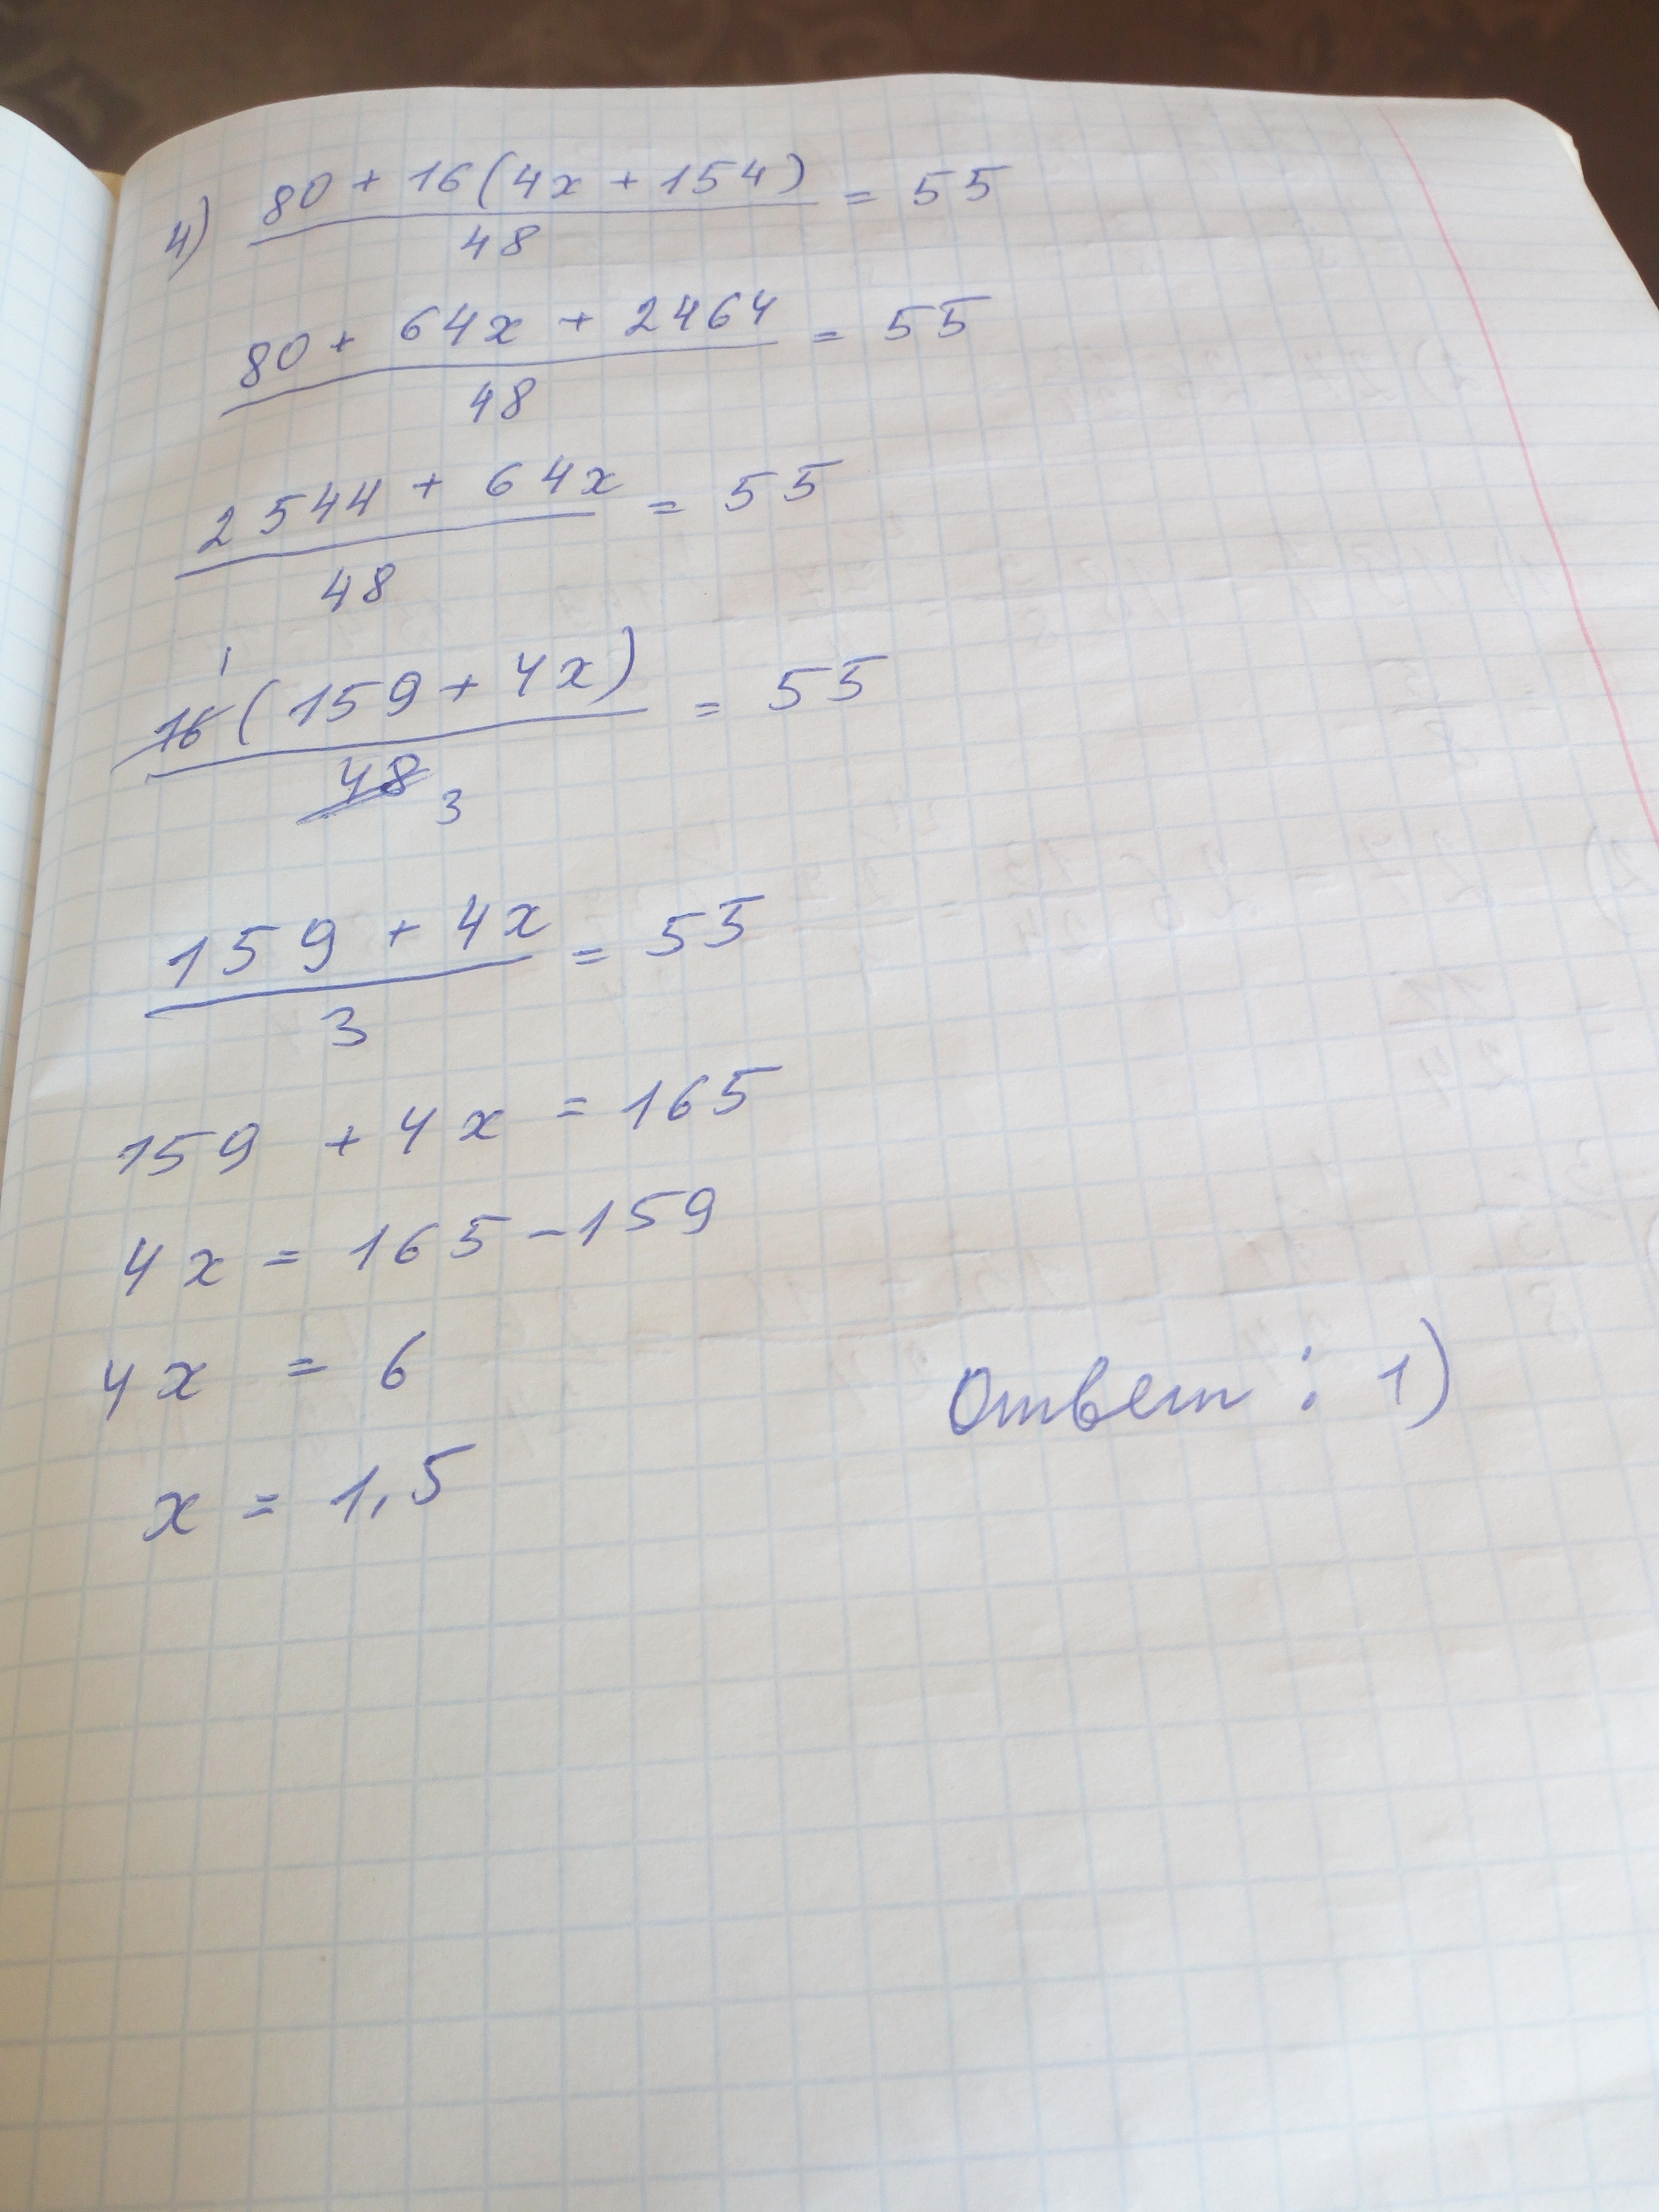 4) (80 + 16(4x + 154))/48 = 55
(80 + 64x + 2464)/48 = 55
(2544 + 64x)/48 = 55
1
16(159 + 4x)/48 = 55
3
(159 + 4x)/3 = 55
159 + 4x = 165
4x = 165 - 159
4x = 6
Ответ : 1)
x = 1,5